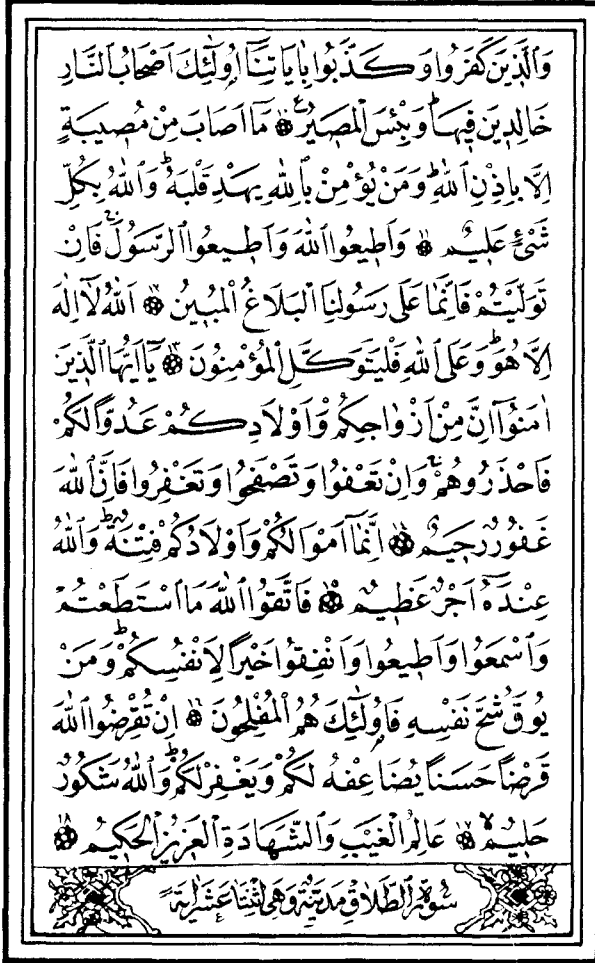 وَالَّذِينَ كَفَرُوا وَكَذَّبُوا بِاٰيَاتِنَٓا اُو۬لٰٓئِكَ اَصْحَابُ النَّارِ
خَالِدِينَ فِيهَاۜ وَبِئْسَ الْمَصِيرُ۟ ﴿١٠﴾ مَٓا اَصَابَ مِنْ مُصِيبَةٍ
اِلَّا بِاِذْنِ اللّٰهِۜ وَمَنْ يُؤْمِنْ بِاللّٰهِ يَهْدِ قَلْبَهُۜ وَاللّٰهُ بِكُلِّ
شَيْءٍ عَلِيمٌ ﴿١١﴾ وَاَطِيعُوا اللّٰهَ وَاَطِيعُوا الرَّسُولَۚ فَاِنْ
تَوَلَّيْتُمْ فَاِنَّمَا عَلٰى رَسُولِنَا الْبَلَاغُ الْمُبِينُ ﴿١٢﴾ اَللّٰهُ لَٓا اِلٰهَ
اِلَّا هُوَۜ وَعَلَى اللّٰهِ فَلْيَتَوَكَّلِ الْمُؤْمِنُونَ ﴿١٣﴾ يَٓا اَيُّهَا الَّذِينَ
اٰمَنُٓوا اِنَّ مِنْ اَزْوَاجِكُمْ وَاَوْلَادِكُمْ عَدُوًّا لَكُمْ
فَاحْذَرُوهُمْۚ وَاِنْ تَعْفُوا وَتَصْفَحُوا وَتَغْفِرُوا فَاِنَّ اللّٰهَ
غَفُورٌ رَحِيمٌ ﴿١٤﴾ اِنَّمَٓا اَمْوَالُكُمْ وَاَوْلَادُكُمْ فِتْنَةٌۜ وَاللّٰهُ
عِنْدَهُٓ اَجْرٌ عَظِيمٌ ﴿١٥﴾ فَاتَّقُوا اللّٰهَ مَا اسْتَطَعْتُمْ
وَاسْمَعُوا وَاَطِيعُوا وَاَنْفِقُوا خَيْرًا لِاَنْفُسِكُمْۜ وَمَنْ
يُوقَ شُحَّ نَفْسِهِ فَاُو۬لٰٓئِكَ هُمُ الْمُفْلِحُونَ ﴿١٦﴾ اِنْ تُقْرِضُوا اللّٰهَ
قَرْضًا حَسَنًا يُضَاعِفْهُ لَكُمْ وَيَغْفِرْ لَكُمْۜ وَاللّٰهُ شَكُورٌ
حَلِيمٌۙ ﴿١٧﴾ عَالِمُ الْغَيْبِ وَالشَّهَادَةِ الْعَزِيزُ الْحَكِيمُ ﴿١٨﴾
سُورَةُ الطَّلَاقِ مَدَنِيَّةٌ وَهِيَ اثْنَتَا عَشْرَةَ اٰيَةً